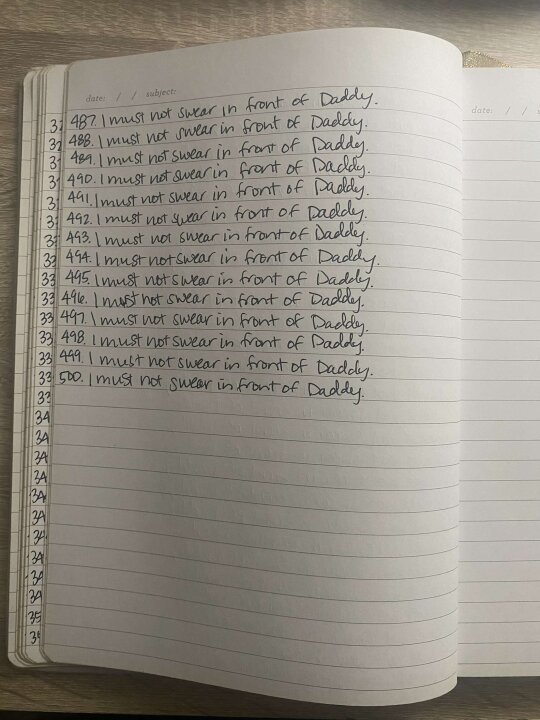 date: / / subject:
487. I must not swear in front of Daddy.
488. I must not swear in front of Daddy.
489. I must not swear in front of Daddy.
490. I must not swear in front of Daddy.
491. I must not swear in front of Daddy.
492. I must not swear in front of Daddy.
493. I must not swear in front of Daddy.
494. I must not swear in front of Daddy.
495. I must not swear in front of Daddy.
496. I must not swear in front of Daddy.
497. I must not swear in front of Daddy.
498. I must not swear in front of Daddy.
499. I must not swear in front of Daddy.
500. I must not swear in front of Daddy.
date: / /